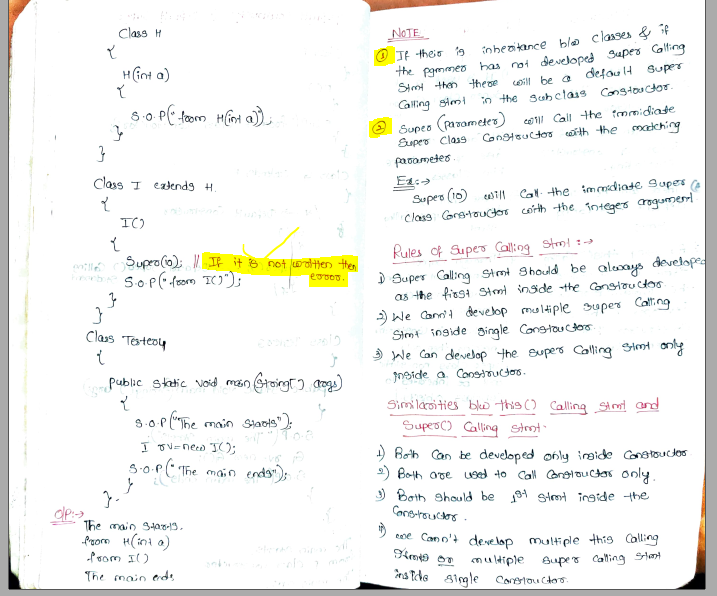 Class H
{
H(int a)
{
S.O.P("from H(int a)");
}
}
Class I extends H
{
I()
{
Super(10); // If it is not written then
error.
S.O.P("from I()");
}
}
Class Tester4
{
Public static void main(String[] args)
{
S.O.P("The main starts");
I rv=new I();
S.O.P("The main ends");
}
O/P:→
The main starts.
from H(int a)
from I()
The main ends
NOTE
① If their is inheritance b/w classes & if
the pgmmer has not developed super Calling
Stmt then there will be a default super
Calling stmt in the subclass Constructor.
② Super (parameter) will Call the immidiate
Super Class Constructor with the matching
parameter.
Ex:→
Super(10) will Call the immdiate super
Class Constructor with the integer argument
Rules of Super Calling Stmt :→
1) Super Calling Stmt should be always develope
as the first Stmt inside the Constructor
2) We Cann't develop multiple super Calling
Stmt inside single Constructor.
3) We Can develop the super Calling Stmt only
inside a Constructor.
Similarities b/w this() Calling Stmt and
Super() Calling Stmt.
1) Both Can be developed only inside Constructor
2) Both are used to Call Constructor only.
3) Both should be 1st Stmt inside the
Constructor.
4) we Cann't develop multiple this Calling
Stmts or multiple super Calling Stmt
inside single Constructor.